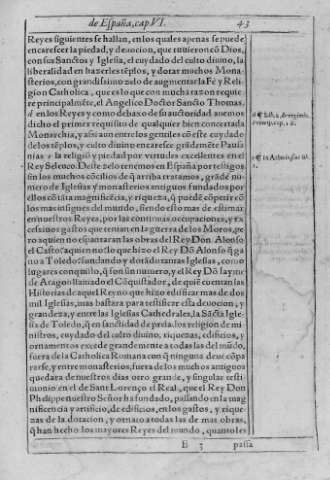 de España, cap. VI. 43
Reyes siguientes se hallan, en los quales apenas se puede
encarescer la piedad, y deuocion, que tuuieron cõ Dios,
con sus Sanctos y Iglesia, el cuydado del culto diuino, la
liberalidad en hazerles tẽplos, y dotar muchos Mona-
sterios, con grandissimo zelo de augmentar la Fè y Reli-
gion Catholica, que es lo que con mucha razon requie
re principalmẽte, el Angelico Doctor Sancto Thomas,
en los Reyes y como debaxo de su autoridad auemos
dicho el primer requisito de qualquier bien concertada
Monarchia, y assi aun entre los gentiles cõ este cuydado
de los tẽplos, y culto diuino encaresce grãdemẽte Pausa
nias la religiõ y piedad por virtudes excellentes en el
Rey Seleuco. Deste zelo tenemos en España por testigos
sin los muchos cõcilios de q̃ arriba tratamos, grãde nu-
mero de Iglesias y monasterios antiguos fundados por
ellos cõ tãta magnificẽcia, y riqueza, q̃ puedẽ cõpetir cõ
los mas insignes del mundo, siendo esto mas de estimar
en nuestros Reyes, por las continuas occupaciones, y ex
cessiuos gastos que tenian en la guerra de los Moros, pe
ro a quien no espantaran las obras del Rey Don Alonso
el Casto? a quien no lo que hizo el Rey Dõ Alonso q̃ ga
no a Toledo: fundando y dotãdo tantas Iglesias, como
lugares conquisto, q̃ son sin numero, y el Rey Dõ Iayme
de Aragon llamado el Cõquistador, de quiẽ cuentan las
Historias de aquel Reyno que hizo edificar mas de dos
mil Iglesias, mas bastara para testificar esta deuocion, y
grandeza, y entre las Iglesias Cathedrales, la Sãcta Igle-
sia de Toledo, q̃ en sanctidad de prelados, religion de mi
nistros, cuydado del culto diuino, riquezas, edificios, y
ornamentos excede grandemente a todas las del mũdo,
fuera de la Catholica Romana con q̃ ninguna deue cõpa
rarse, y entre monasterios, fuera de los muchos antiguos
quedara de nuestros dias otro grande, y singular testi-
monio en el de Sant Lorenço el Real, que el Rey Don
Phelippe nuestro Señor ha fundado, passando en la mag
nificencia y artificio, de edificios, en los gastos, y rique-
zas de la dotacion, y ornato a todas las de mas obras,
q̃ han hecho los mayores Reyes del mundo, quanto les
E 3 passa